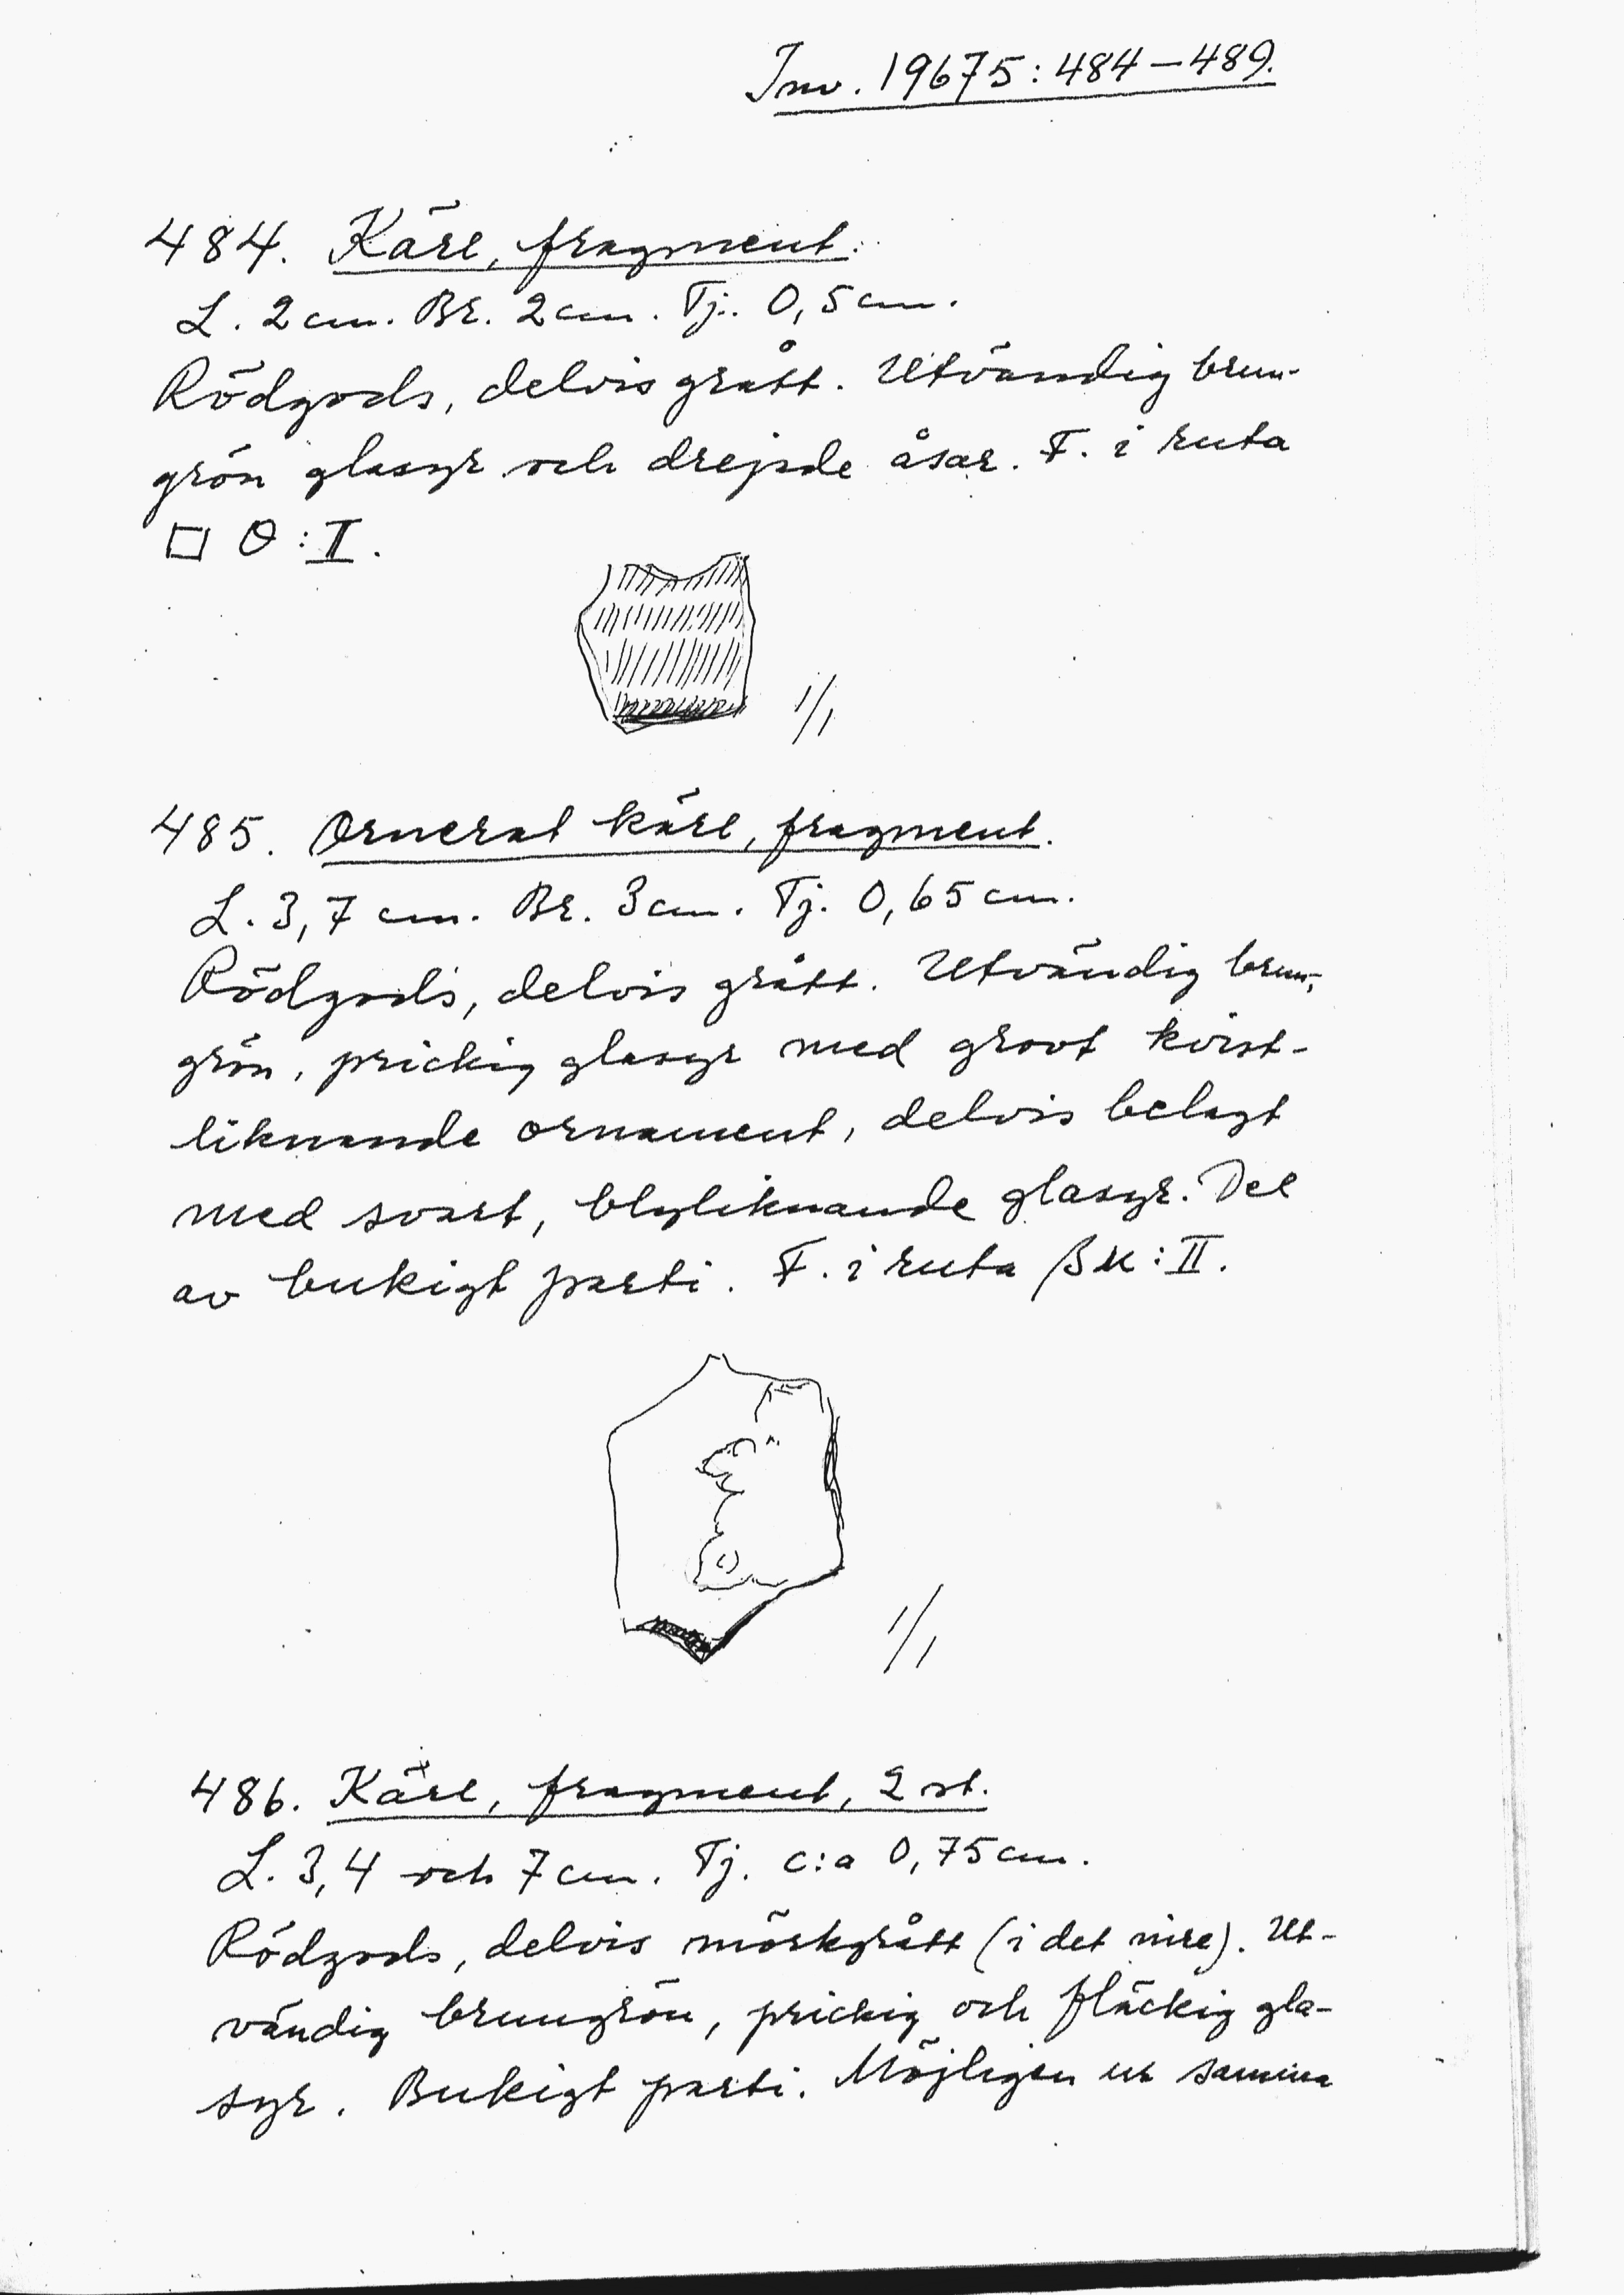 Inv. 19675:484–489.
484. Kärl, fragment.
L. 2 cm. Br. 2 cm. Tj. 0,5 cm.
Rödgods, delvis grått. Utvändig brun-
grön glasyr och drejade åsar. F. i ruta
□ O:I.
1/1
485. Ornerat kärl, fragment.
L. 3,7 cm. Br. 3 cm. Tj. 0,65 cm.
Rödgods, delvis grått. Utvändig brun-
grön, prickig glasyr med grovt kvist-
liknande ornament, delvis belagt
med svart, blyliknande glasyr. Del
av bukigt parti. F. i ruta :II.
1/1
486. Kärl, fragment, 2 st.
L. 3,4 och 7 cm. Tj. c:a 0,75 cm.
Rödgods, delvis mörkgrått (i det inre). Ut-
vändig brungrön, prickig och fläckig gla-
syr. Bukigt parti. Möjligen ur samma